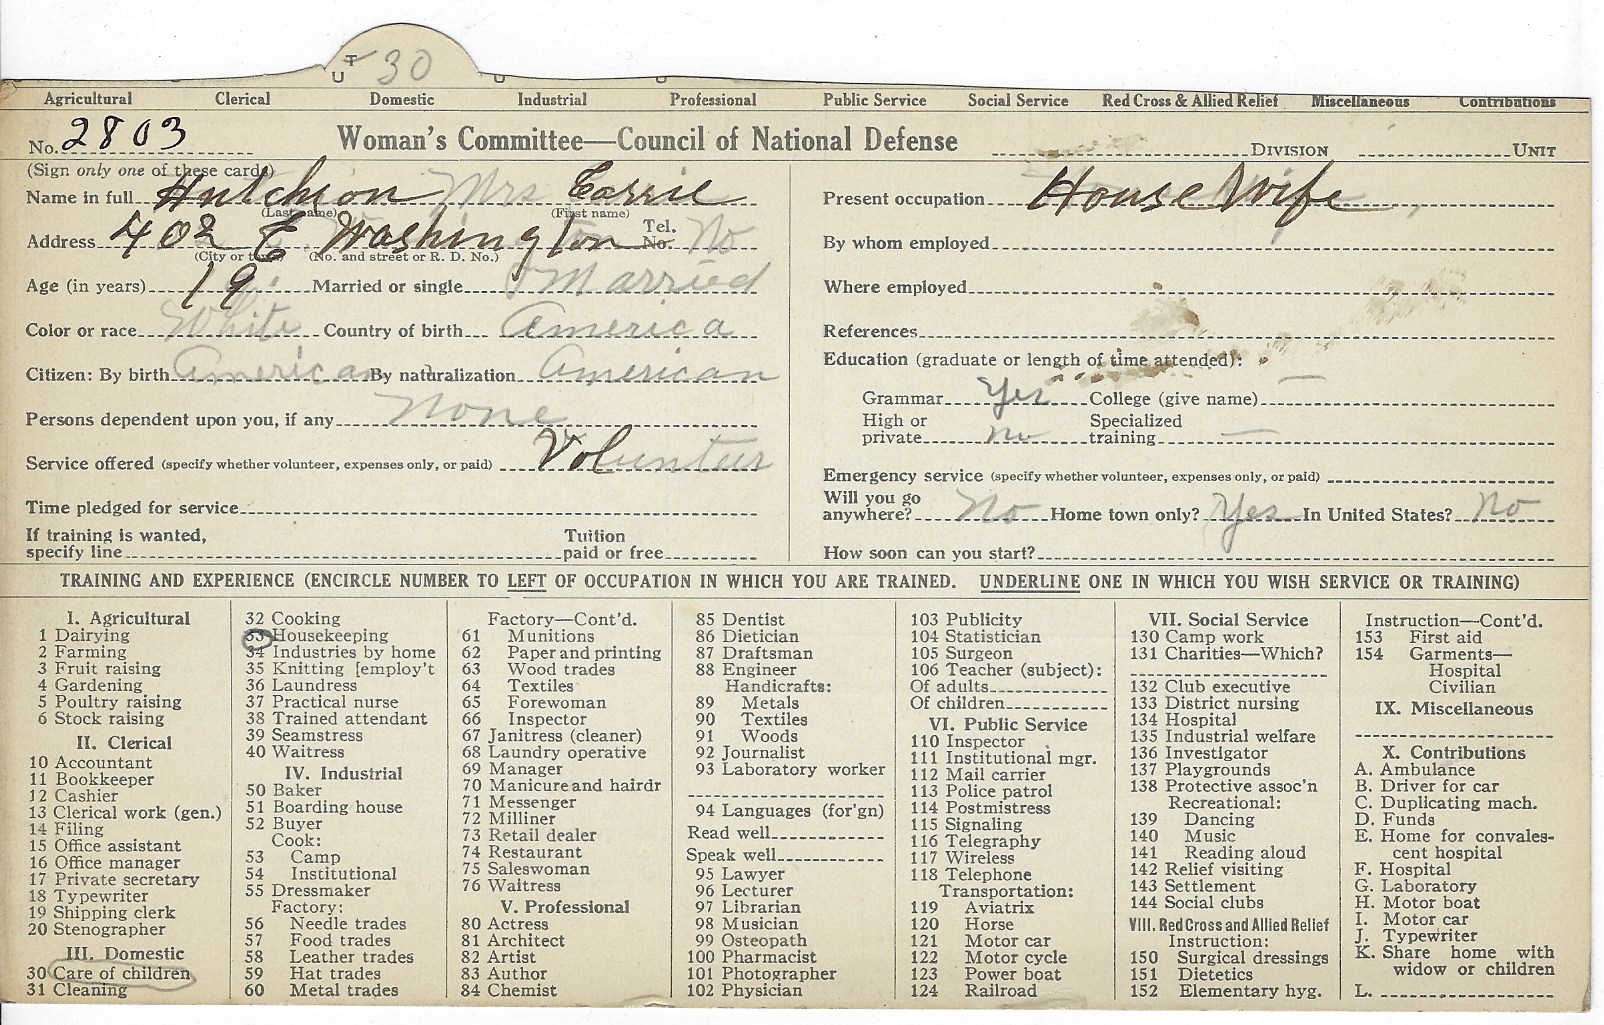 30
Agricultural Clerical Domestic Industrial Professional Public Service Social Service Red Cross & Allied Relief Miscellaneous Contributions
No. 2803 Woman's Committee—Council of National Defense DIVISION UNIT
(Sign only one of these cards)
Name in full Hutchion Mrs Carrie
(Last name) (First name)
Address 402 E Washington Tel. No. No
(City or town) (No. and street or R. D. No.)
Age (in years) 19 Married or single Married
Color or race White Country of birth America
Citizen: By birth American By naturalization American
Persons dependent upon you, if any None
Service offered (specify whether volunteer, expenses only, or paid) Volunteer
Time pledged for service
If training is wanted, specify line Tuition paid or free
Present occupation House Wife
By whom employed
Where employed
References
Education (graduate or length of time attended):
Grammar Yes College (give name) —
High or private no Specialized training —
Emergency service (specify whether volunteer, expenses only, or paid)
Will you go anywhere? No Home town only? Yes In United States? No
How soon can you start?
TRAINING AND EXPERIENCE (ENCIRCLE NUMBER TO LEFT OF OCCUPATION IN WHICH YOU ARE TRAINED. UNDERLINE ONE IN WHICH YOU WISH SERVICE OR TRAINING)
I. Agricultural
1 Dairying
2 Farming
3 Fruit raising
4 Gardening
5 Poultry raising
6 Stock raising
II. Clerical
10 Accountant
11 Bookkeeper
12 Cashier
13 Clerical work (gen.)
14 Filing
15 Office assistant
16 Office manager
17 Private secretary
18 Typewriter
19 Shipping clerk
20 Stenographer
III. Domestic
30 Care of children
31 Cleaning
32 Cooking
33 Housekeeping
34 Industries by home
35 Knitting [employ't
36 Laundress
37 Practical nurse
38 Trained attendant
39 Seamstress
40 Waitress
IV. Industrial
50 Baker
51 Boarding house
52 Buyer
Cook:
53 Camp
54 Institutional
55 Dressmaker
Factory:
56 Needle trades
57 Food trades
58 Leather trades
59 Hat trades
60 Metal trades
Factory—Cont'd.
61 Munitions
62 Paper and printing
63 Wood trades
64 Textiles
65 Forewoman
66 Inspector
67 Janitress (cleaner)
68 Laundry operative
69 Manager
70 Manicure and hairdr
71 Messenger
72 Milliner
73 Retail dealer
74 Restaurant
75 Saleswoman
76 Waitress
V. Professional
80 Actress
81 Architect
82 Artist
83 Author
84 Chemist
85 Dentist
86 Dietician
87 Draftsman
88 Engineer
Handicrafts:
89 Metals
90 Textiles
91 Woods
92 Journalist
93 Laboratory worker
94 Languages (for'gn)
Read well
Speak well
95 Lawyer
96 Lecturer
97 Librarian
98 Musician
99 Osteopath
100 Pharmacist
101 Photographer
102 Physician
103 Publicity
104 Statistician
105 Surgeon
106 Teacher (subject):
Of adults
Of children
VI. Public Service
110 Inspector
111 Institutional mgr.
112 Mail carrier
113 Police patrol
114 Postmistress
115 Signaling
116 Telegraphy
117 Wireless
118 Telephone
Transportation:
119 Aviatrix
120 Horse
121 Motor car
122 Motor cycle
123 Power boat
124 Railroad
VII. Social Service
130 Camp work
131 Charities—Which?
132 Club executive
133 District nursing
134 Hospital
135 Industrial welfare
136 Investigator
137 Playgrounds
138 Protective assoc'n
Recreational:
139 Dancing
140 Music
141 Reading aloud
142 Relief visiting
143 Settlement
144 Social clubs
VIII. Red Cross and Allied Relief
Instruction:
150 Surgical dressings
151 Dietetics
152 Elementary hyg.
Instruction—Cont'd.
153 First aid
154 Garments—
Hospital
Civilian
IX. Miscellaneous
X. Contributions
A. Ambulance
B. Driver for car
C. Duplicating mach.
D. Funds
E. Home for convales-
cent hospital
F. Hospital
G. Laboratory
H. Motor boat
I. Motor car
J. Typewriter
K. Share home with
widow or children
L.